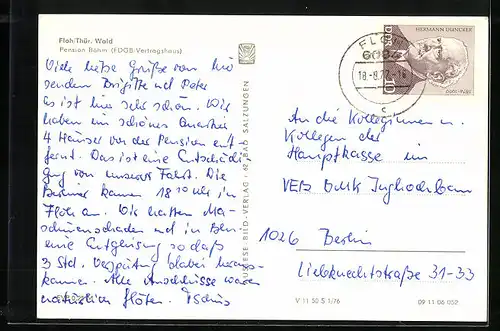 Floh/Thür. Wald
Pension Böhm (FDGB-Vertragshaus)
Viele liebe Grüße von hier
senden Brigitte und Peter
Es ist hier sehr schön. Wir
haben ein schönes Quartier
4 Häuser von der Pension ent-
fernt. Das ist eine Entschädi-
gung von unserer Fahrt. Die
Berliner kamen 18 Uhr in
Floh an. Wir hatten Ma-
schinenschaden und in
eine Entgleisung so daß
3 Std. Verspätung dabei heraus-
kamen. Alle Anschlüsse waren
natürlich flöten. Tschüs
HERMANN DUNCKER
DDR
10
FLOH
18.-8.77
BILD-VERLAG · 62 BAD SALZUNGEN
An die Kolleginnen u.
Kollegen der
Hauptkasse im
VEB
1026 Berlin
Liebknechtstraße 31-33
V 11 50 S 1/76
09 11 06 052